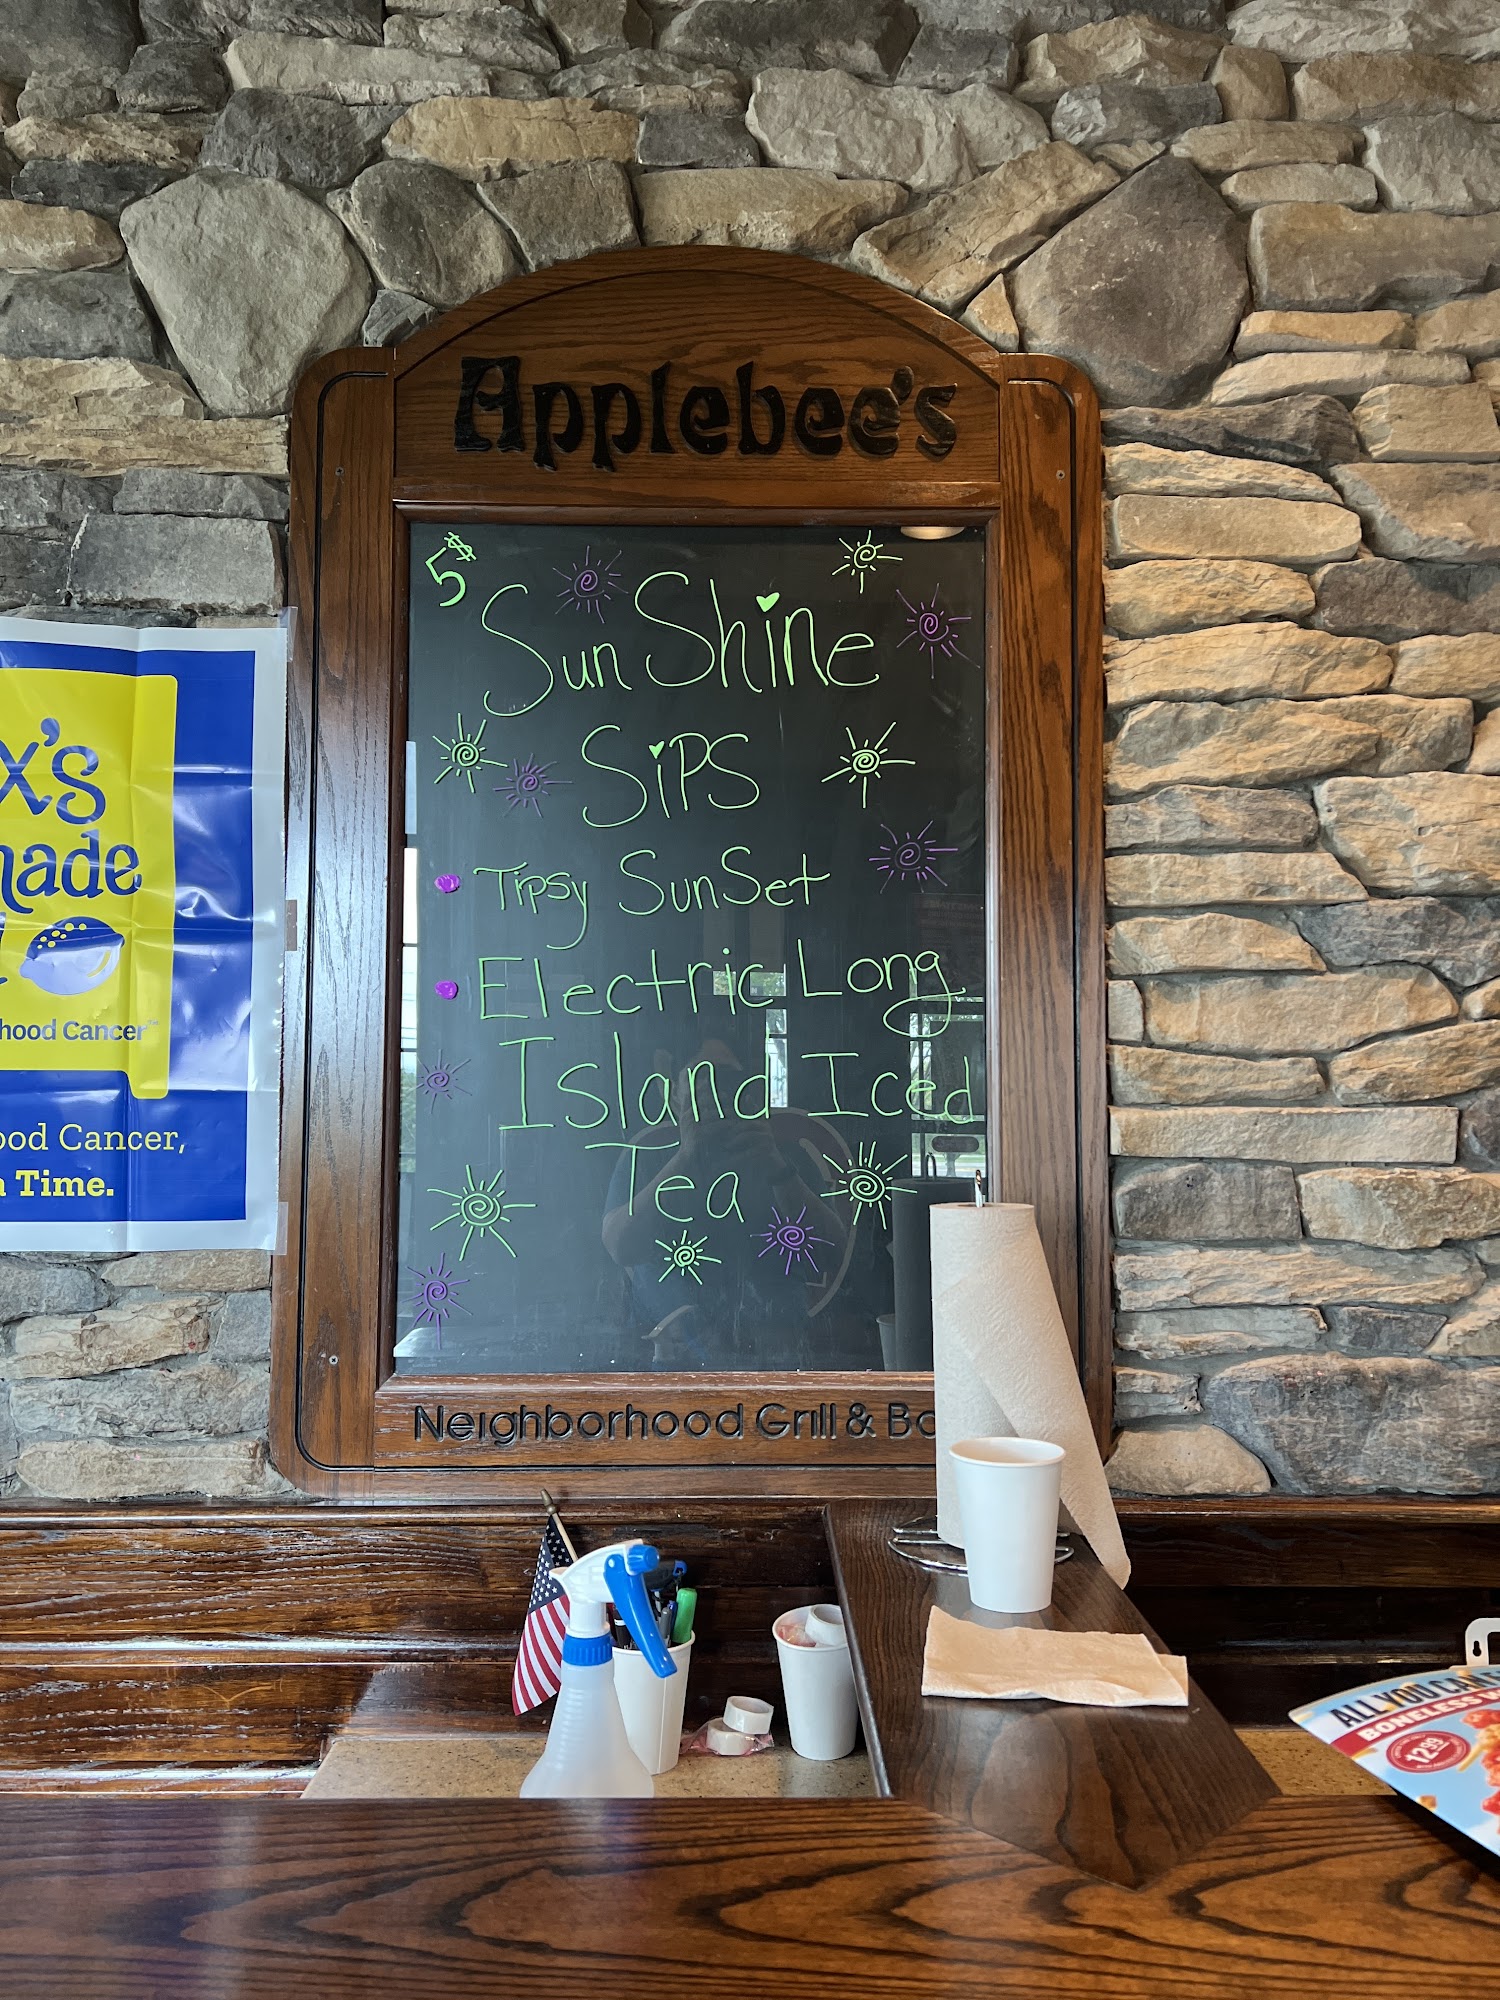 Applebee's
5$
SunShine
SiPS
Tipsy SunSet
Electric Long
Island Iced
Tea
Neighborhood Grill &
x's
made
hood Cancer™
ood Cancer,
a Time.
ALL YOU CAN E
BONELESS W
12.99